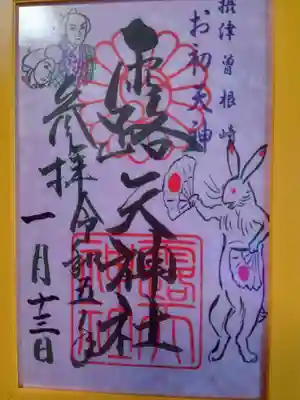 摂津曽根崎
お初天神
露天神社
奉拝
令和五年
一月十三日